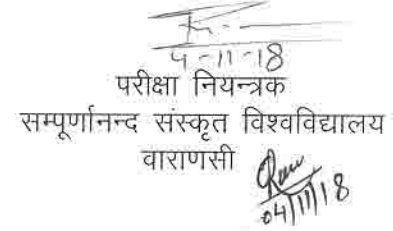 4-11-18
परीक्षा नियन्त्रक
सम्पूर्णानन्द संस्कृत विश्वविद्यालय
वाराणसी
04/11/18